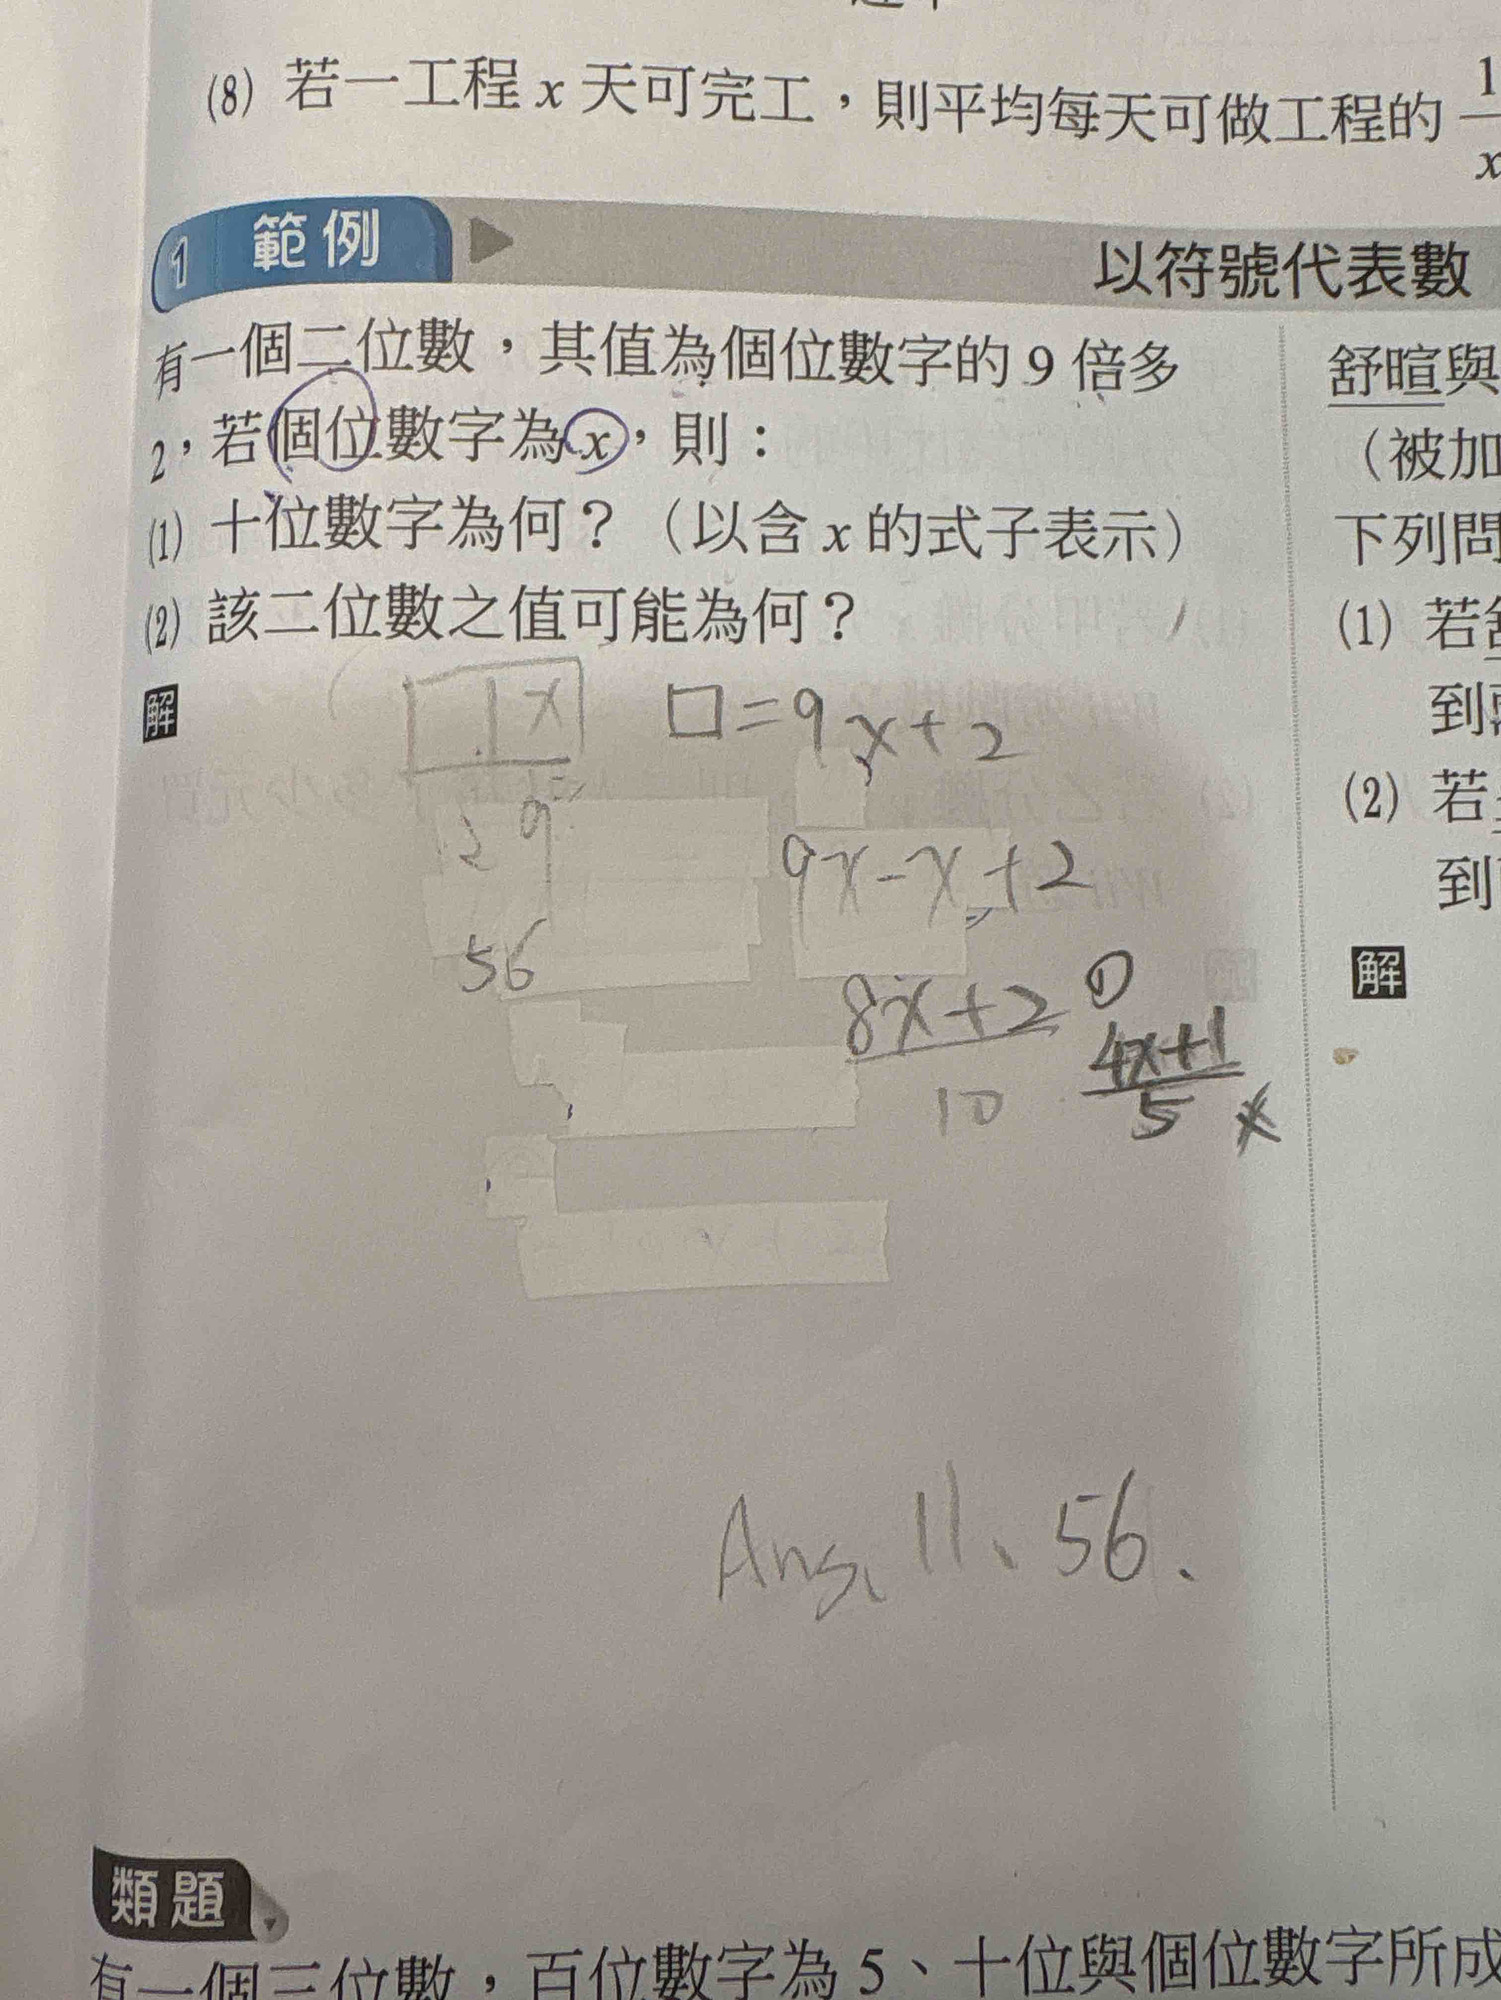 (8) 若一工程 x 天可完工，則平均每天可做工程的 1/x
1 範例
以符號代表數
有一個二位數，其值為個位數字的 9 倍多
2，若個位數字為 x，則：
(1) 十位數字為何？（以含 x 的式子表示）
(2) 該二位數之值可能為何？
解
1 x
□=9x+2
29
9x-x+2
56
8x+2/10 ①
4x+1/5
Ans. 11、56.
舒暄與
（被加
下列問
(1) 若
到
(2) 若
到
解
類題
有一個三位數，百位數字為 5、十位與個位數字所成